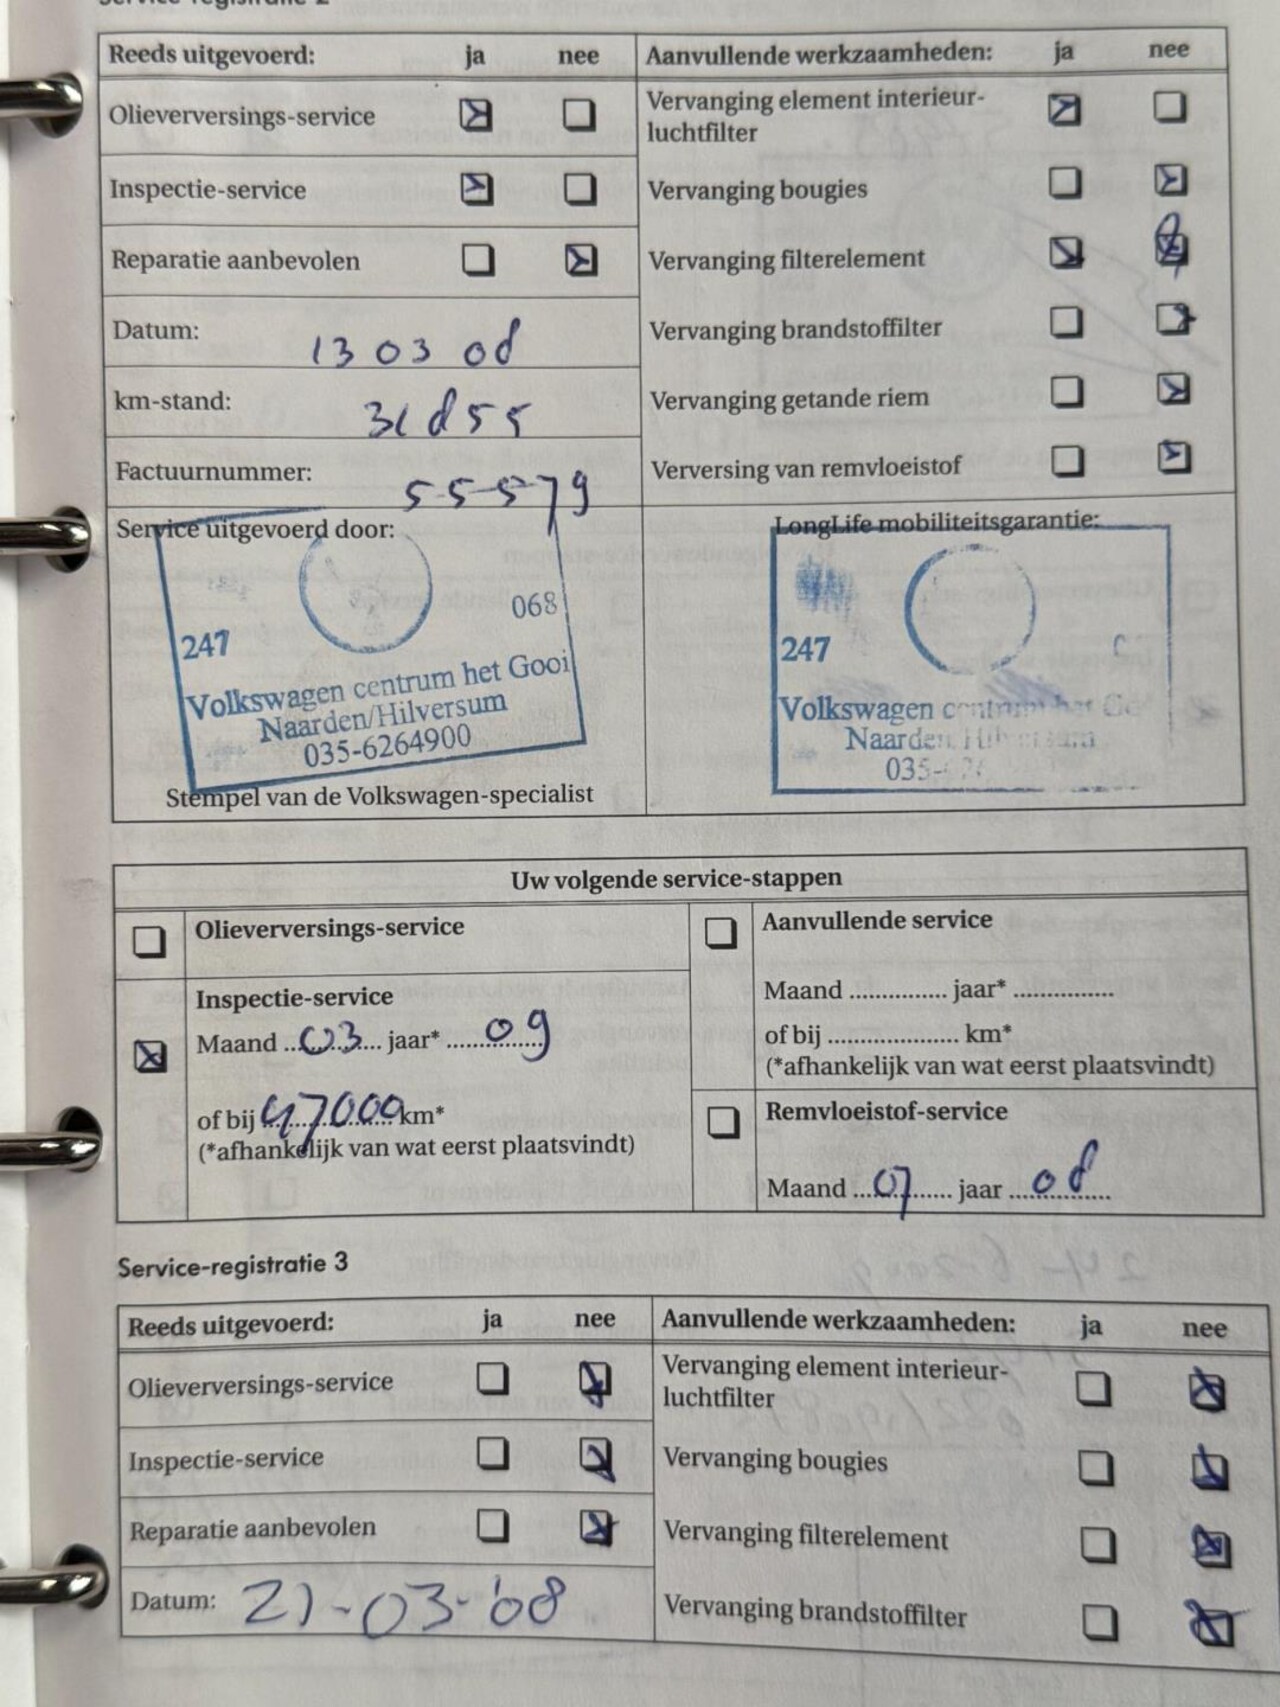 Reeds uitgevoerd: ja nee
Olieverversings-service
Inspectie-service
Reparatie aanbevolen
Datum: 13 03 08
km-stand:
Factuurnummer: 55579
Aanvullende werkzaamheden: ja nee
Vervanging element interieur-
luchtfilter
Vervanging bougies
Vervanging filterelement
Vervanging brandstoffilter
Vervanging getande riem
Verversing van remvloeistof
Service uitgevoerd door:
068
247
Volkswagen centrum het Gooi
Naarden/Hilversum
035-6264900
Stempel van de Volkswagen-specialist
LongLife mobiliteitsgarantie:
247
Volkswagen centrum het
Naarden Hilversum
035-
Uw volgende service-stappen
Olieverversings-service
Inspectie-service
Maand 03 jaar* 09
of bij 47000 km*
(*afhankelijk van wat eerst plaatsvindt)
Aanvullende service
Maand ............... jaar* ...............
of bij .................... km*
(*afhankelijk van wat eerst plaatsvindt)
Remvloeistof-service
Maand 07 jaar 08
Service-registratie 3
Reeds uitgevoerd: ja nee
Olieverversings-service
Inspectie-service
Reparatie aanbevolen
Datum: 21-03-'08
Aanvullende werkzaamheden: ja nee
Vervanging element interieur-
luchtfilter
Vervanging bougies
Vervanging filterelement
Vervanging brandstoffilter